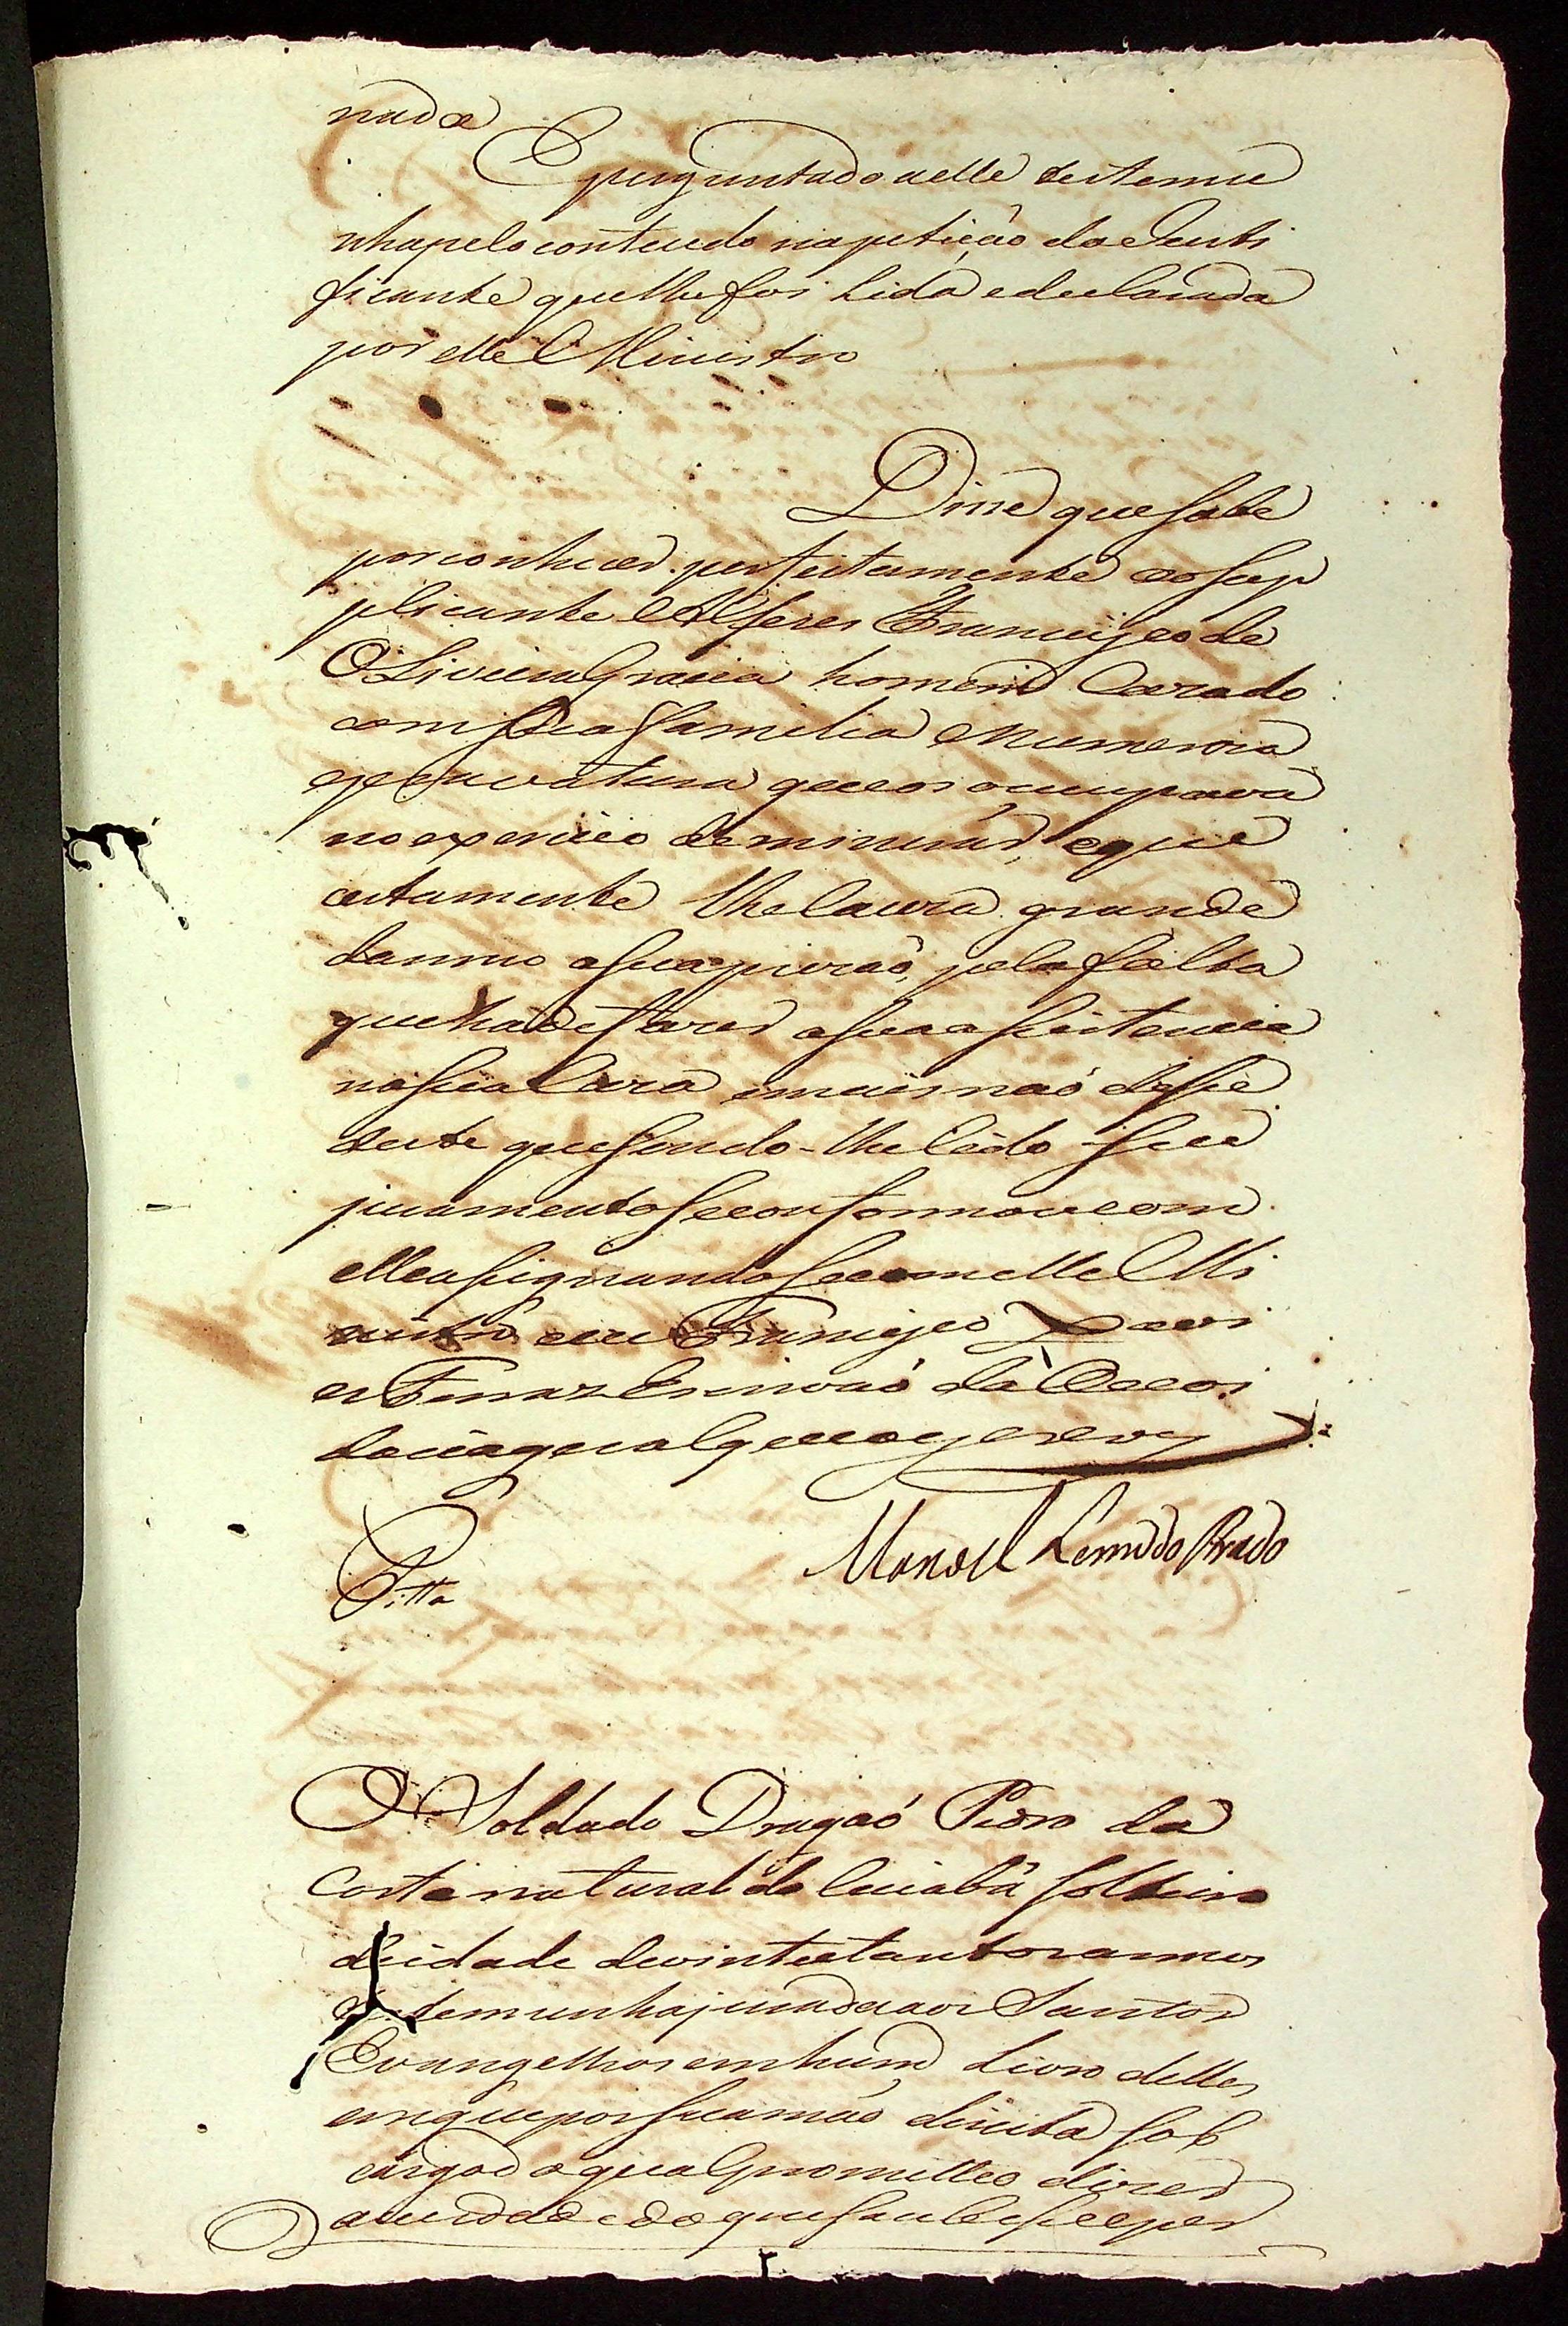 nada
E perguntado a elle testemu
nha pelo contendo napetição do Justi
ficante que lhe foi Lida edeclarada
por elle Ministro
Disse que sabe
por conhecer perfeitamente ao Sup
plicante Alferes Francisco de
Oliveira Gracia homem Cazado
com sua familia e Numeroza
escravatura que os occupava
no exercicio de minerár, e que
certamente lhe Cauza grande
damno a sua prizaõ, pela falta
que ha de fazer a sua asistencia
na Sua Caza emais naõ disse
deste que sendo-lhe lido seu
juramento se conformou com
elle asignandose com elle Mi
nistro eu Francisco Xavi
er Ferraz Escrivaõ da Ouvi
doria geral que o escrevy
Pitta
Manoel Leme do Prado
O Soldado Dragaó Pedro da
Costa natural do Cuiabá Solteiro
de idade de vinte etantos annos
testemunha jurada aos Santos
Evangelhos em hum Livro delles
em que pos sua maó direita sob
cargo do qual prometteo dizer
averdade e do que soubesse e per